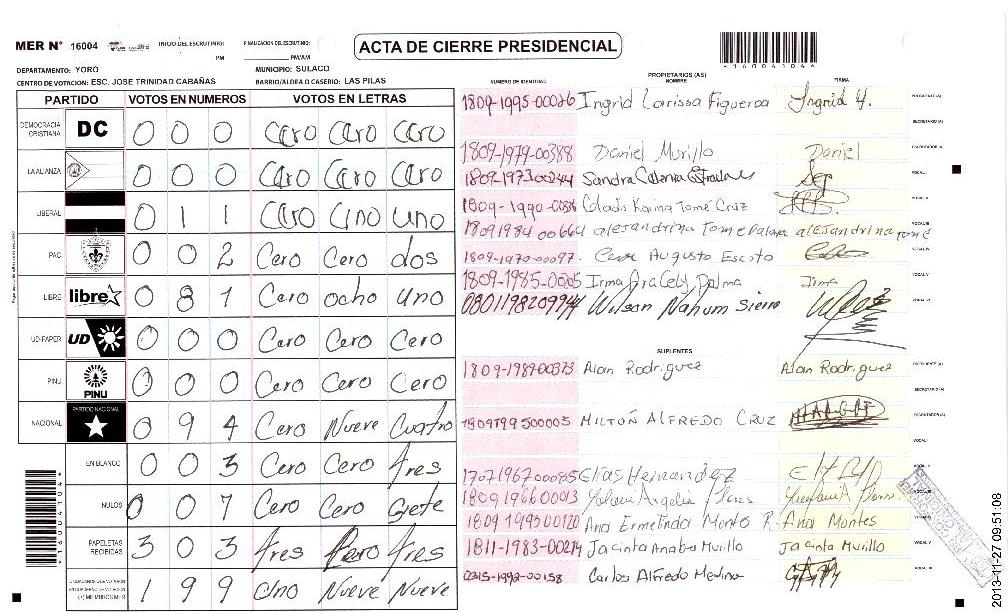 MER N° 16004 INICIO DEL ESCRUTINIO: PM FINALIZACION DEL ESCRUTINIO: PM/AM
ACTA DE CIERRE PRESIDENCIAL
*16004104*
DEPARTAMENTO: YORO MUNICIPIO: SULACO
CENTRO DE VOTACION: ESC. JOSE TRINIDAD CABAÑAS BARRIO/ALDEA O CASERIO: LAS PILAS
PARTIDO VOTOS EN NUMEROS VOTOS EN LETRAS
DEMOCRACIA CRISTIANA DC 0 0 0 Cero Cero Cero
LA ALIANZA 0 0 0 Cero Cero Cero
LIBERAL 0 1 1 Cero Uno Uno
PAC 0 0 2 Cero Cero dos
LIBRE libre 0 8 1 Cero ocho uno
UD-FAPER UD 0 0 0 Cero Cero Cero
PINU PINU 0 0 0 Cero Cero Cero
NACIONAL PARTIDO NACIONAL 0 9 4 Cero Nueve Cuatro
EN BLANCO 0 0 3 Cero Cero tres
NULOS 0 0 7 Cero Cero Siete
PAPELETAS RECIBIDAS 3 0 3 tres Cero tres
1 9 9 Uno Nueve Nueve
*16004104*
PROPIETARIOS (AS)
NUMERO DE IDENTIDAD NOMBRE FIRMA
1809-1995-00026 Ingrid Larissa Figueroa Ingrid Y. PRESIDENTE (A)
SECRETARIO (A)
1809-1979-00388 Daniel Murillo Daniel ESCRUTADOR (A)
1809-1973 00244 Sandra VOCAL I
1809-1990- Gladis Karina Tomé Cruz VOCAL II
1809 1984 00664 alejandrina tome Palma alejandrina tome VOCAL III
1809-1970-00097 Cesar Augusto Escoto VOCAL IV
1809-1985-0005 Irma AraCely Palma Irma VOCAL V
0801198209944 Wilson Nahum Sierra VOCAL VI
SUPLENTES
1809-1989-00373 Alan Rodriguez Alan Rodriguez PRESIDENTE (A)
SECRETARIO (A)
1809199500005 MILTON ALFREDO CRUZ ESCRUTADOR (A)
VOCAL I
1707196700085 Elias Hernandez VOCAL II
1809 1966 00013 VOCAL III
1809 1993 00120 Ana Ermelinda Monto R. Ana Montes VOCAL IV
1811-1983-00214 Jacinta Anaba Murillo Jacinta Murillo VOCAL V
0315-1992-00158 Carlos Alfredo Medina VOCAL VI
2013-11-27 09:51:08